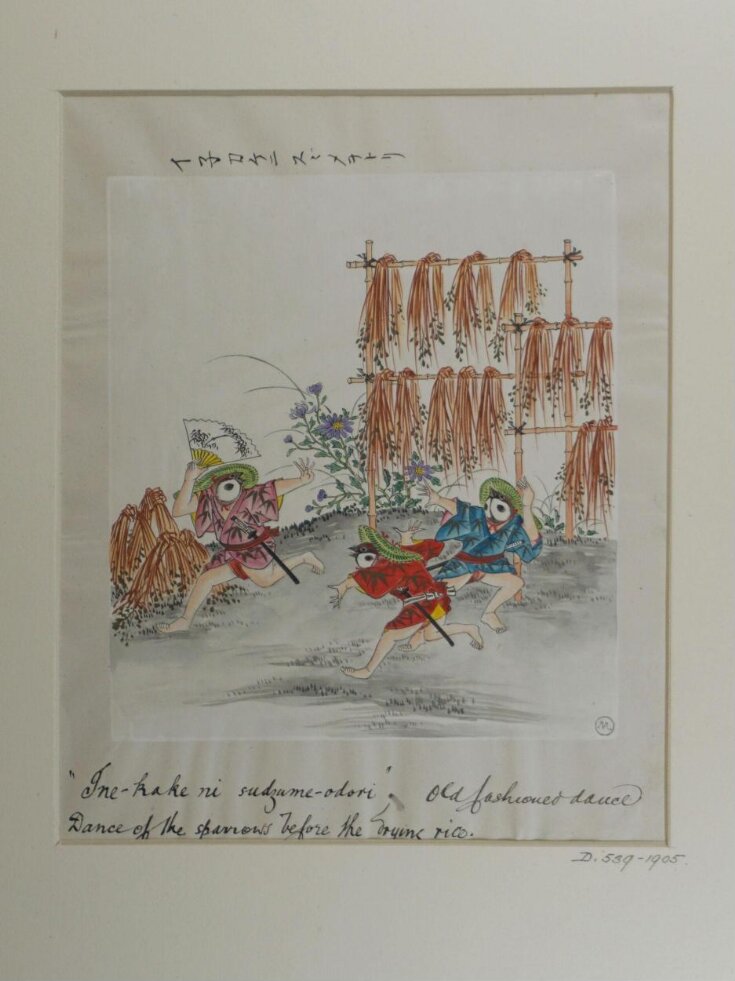 イ子カケニ スヾメヲトリ
"Ine-kake ni sudzume-odori". Old fashioned dance
Dance of the sparrows before the drying rice.
D.539-1905.